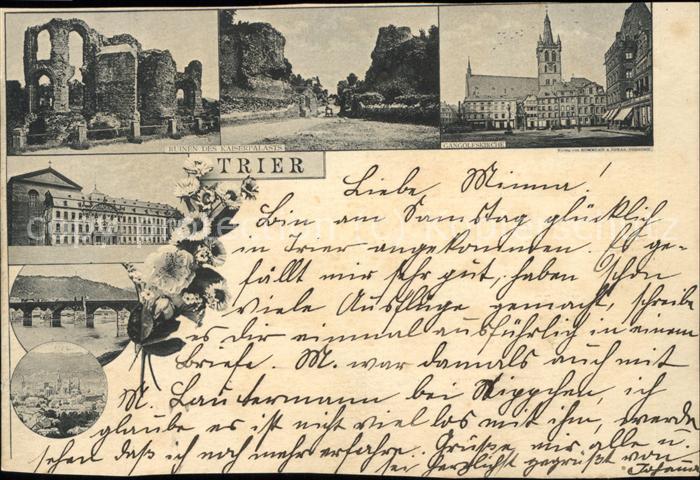 RUINEN DES KAISERPALASTS
GANGOLFSKIRCHE
TRIER
Liebe Minna!
Bin am Samstag glücklich
in Trier angekommen. Es ge-
fällt mir sehr gut, haben schon
viele Ausflüge gemacht, schreibe
es dir einmal ausführlich in einem
Briefe. M. war damals auch mit
M. Lautermann bei Stippchen, ich
glaube es ist nicht viel los mit ihm, werde
sehen daß ich noch mehr erfahre. Grüße mir alle u.
sei herzlichst gegrüßt von
Johanna